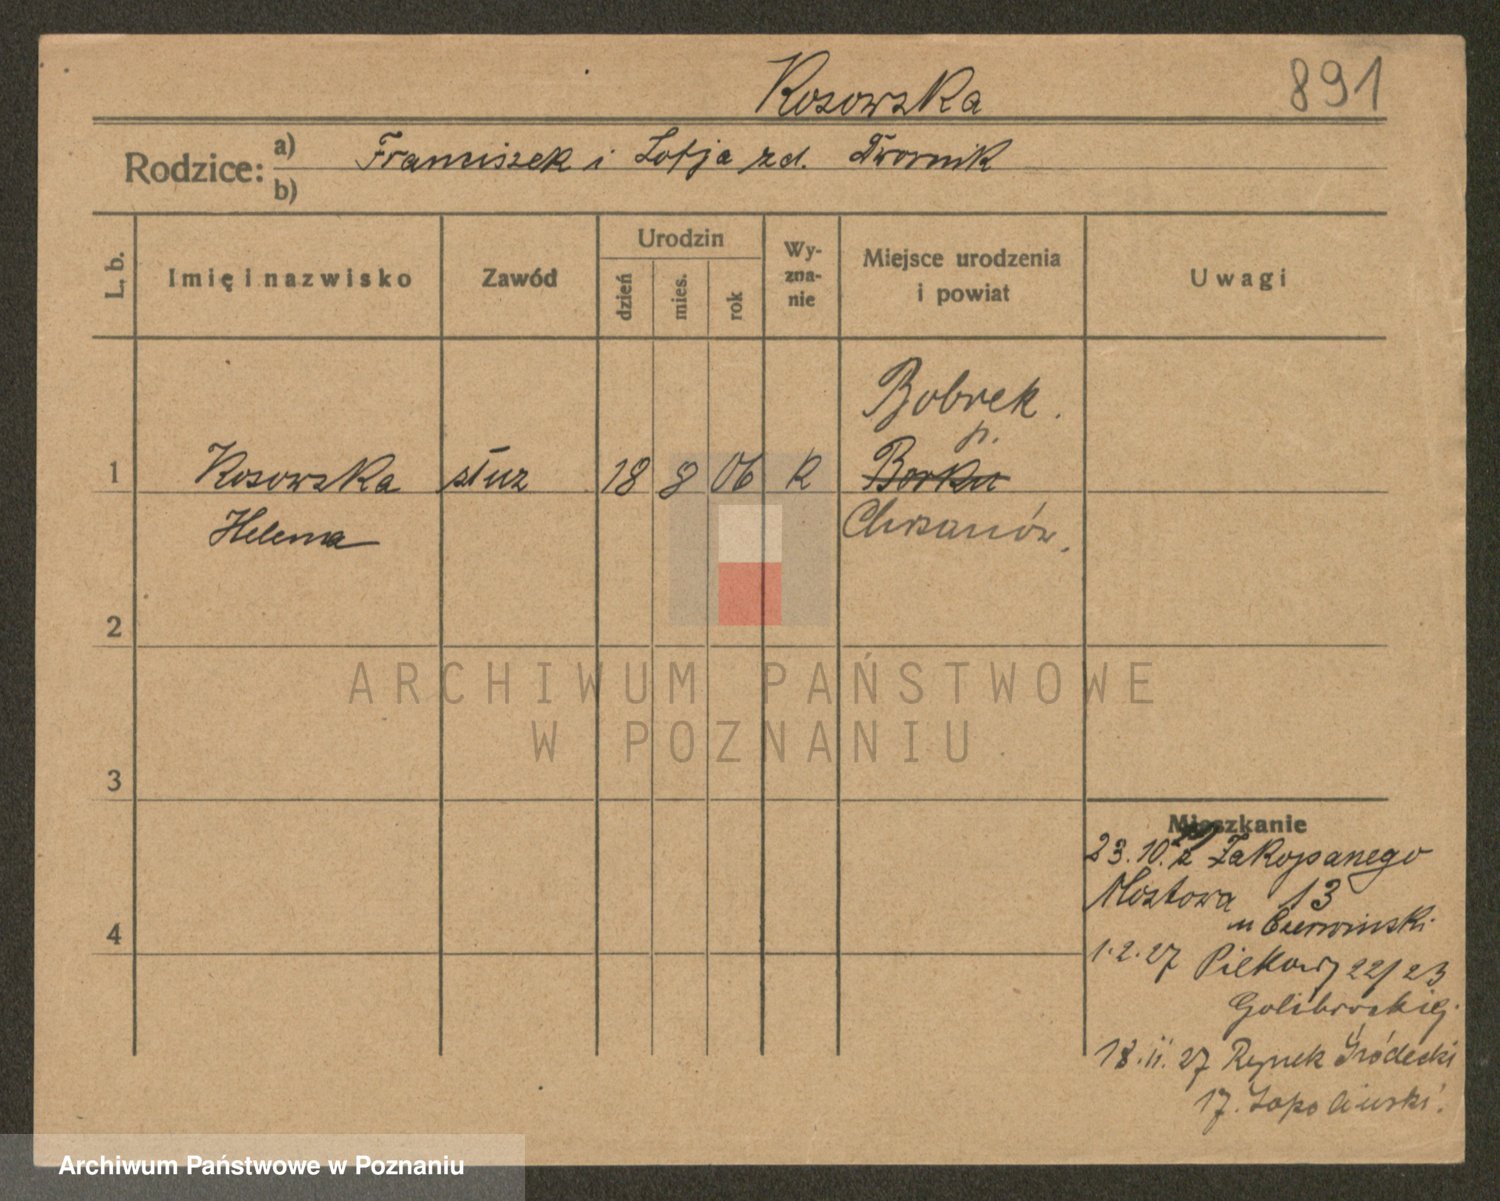 Kosowska
891
Rodzice: a) Franciszek i Zofja zd. Dwornik
b)
L. b.
Imię i nazwisko
Zawód
Urodzin
dzień
mies.
rok
Wy-
zna-
nie
Miejsce urodzenia
i powiat
Uwagi
Bobrek.
p.
1 Kosowska służ 18 8 06 k Borku
Helena Chrzanów.
2
3
4
ARCHIWUM PAŃSTWOWE
W POZNANIU
Mieszkanie
23.10. z Zakopanego
Mostowa 13
u Czerwiński
1.2.27 Piekary 22/23
18.II.27 Rynek Śródecki
17.
Archiwum Państwowe w Poznaniu